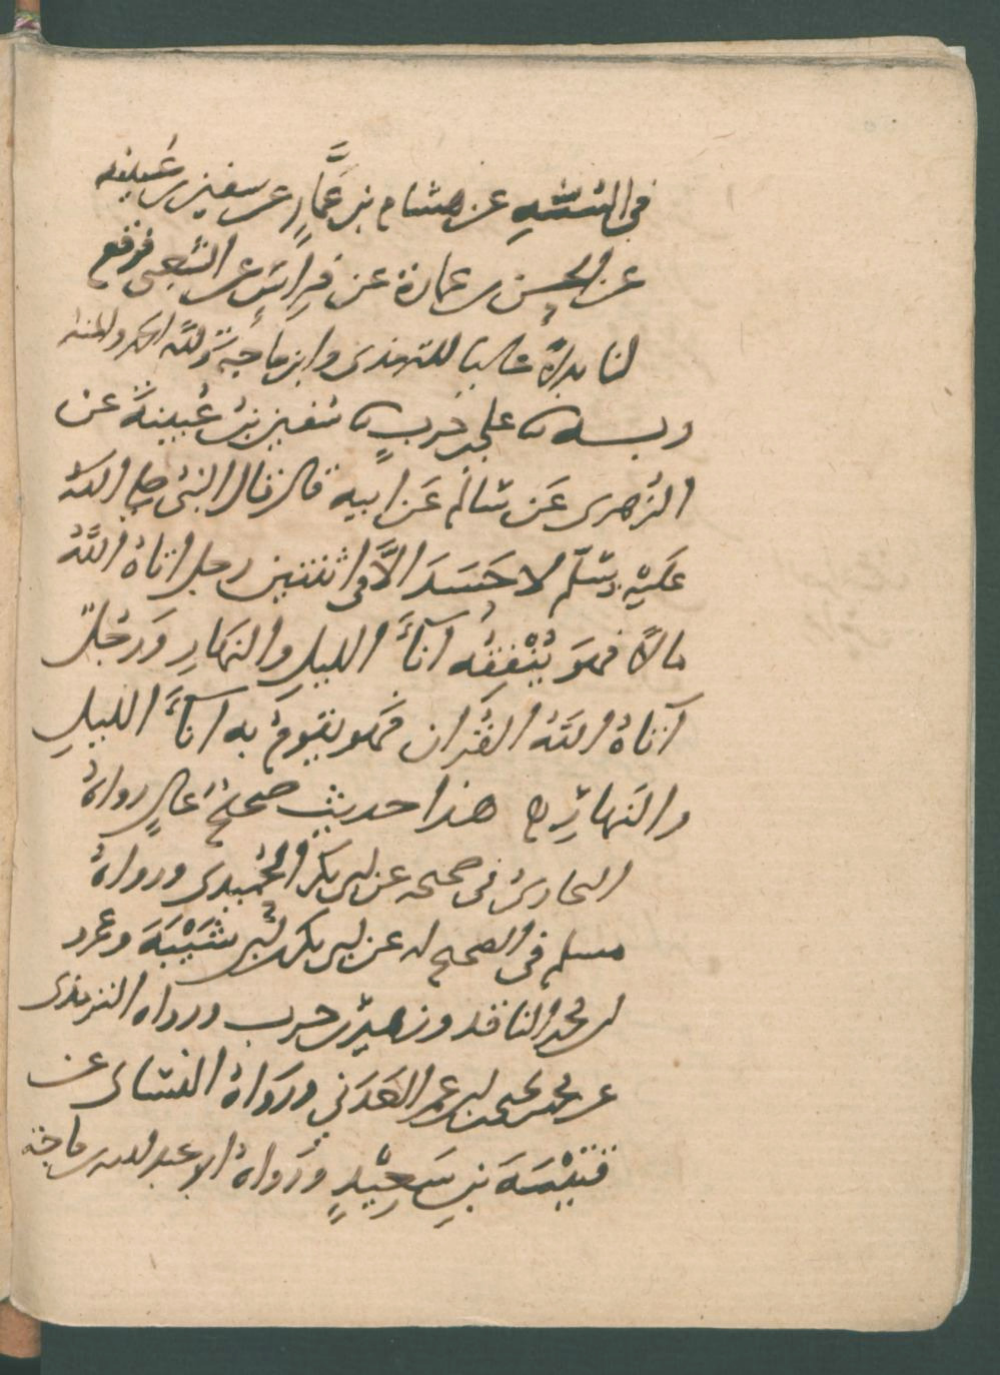 في السنة عن هشام بن عَمَّارٍ عن سفين بن عيينه
عن الحسن بن عمارة عن فِراس عن الشعبى فوقع
لنا بدلاً عاليا للترمذى وابن ماجة ولله الحمد والمنه
وبه علي بن حرب سفين بن عُيينة عن
الزُهرى عَن سَالم عَن ابيه قال قال النبى صلى الله
عَليْهِ وسَلّم لا حَسَدَ الاَّ في اثنتين رجل اتاهُ اللَّهُ
مالاً فهوَ يُنْفِقُه آنآءَ الليلِ والنهَارِ وَرَجُلٌ
آتاهُ اللَّهُ القُرانَ فهو يَقومُ به آنآءَ الليلِ
والنَهارِ هذا حديث صحيحٌ عَالٍ رواهُ
البخارىُ فى صحيحه عن ابى بكر الحُميدى ورواهُ
مسلم في الصحيح له عن ابى بكر بن ابى شَيْبَةَ وعمرو
بن محمد الناقد وزهير بن حرب ورواه الترمذى
عن محمد بن يحيى بن ابى عمر العَدَني ورَوَاهُ النسَاى عن
قتَيْبَةَ بنِ سَعِيْدٍ ورَواهُ ابو عبد الله بن ماجة